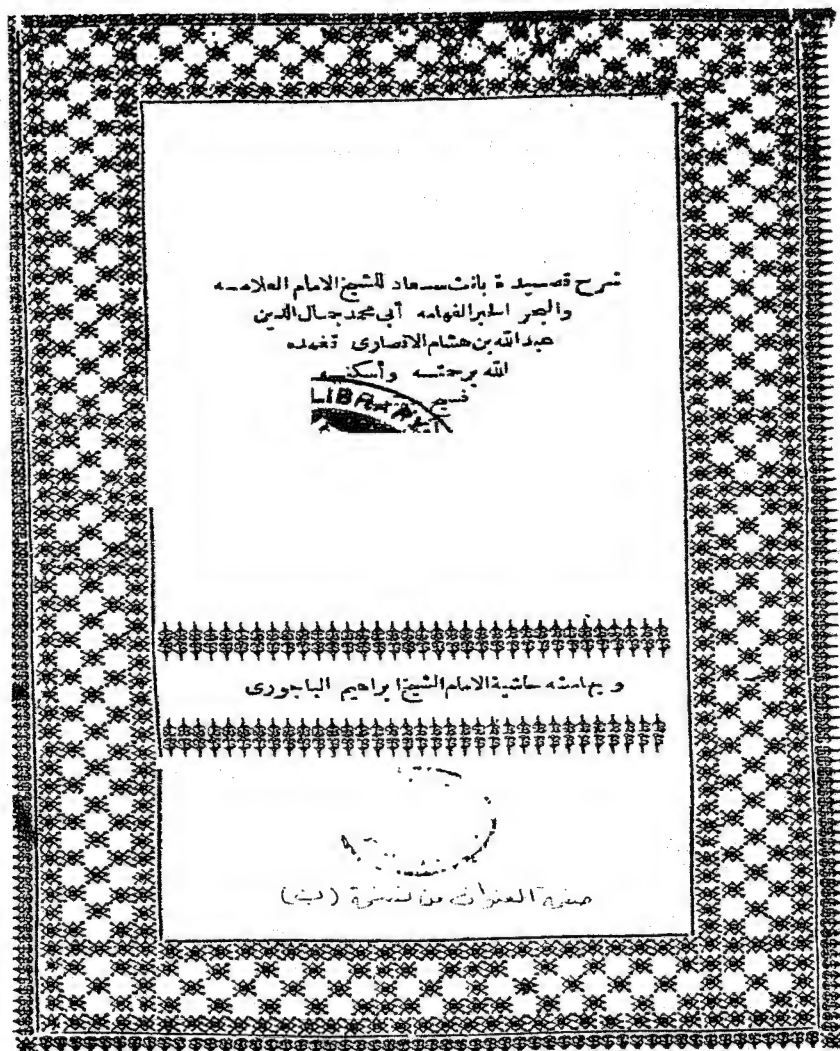 شرح قصيدة بانت سعاد للشيخ الامام العلامه
والبحر الحبر الفهامه أبي محمد جمال الدين
عبد الله بن هشام الانصارى تغمده
الله برحمته وأسكنه
فسيح
LIBRARY
وبهامشه حاشية الامام الشيخ ابراهيم الباجورى
صفحة العنوان من نسخة (ب)